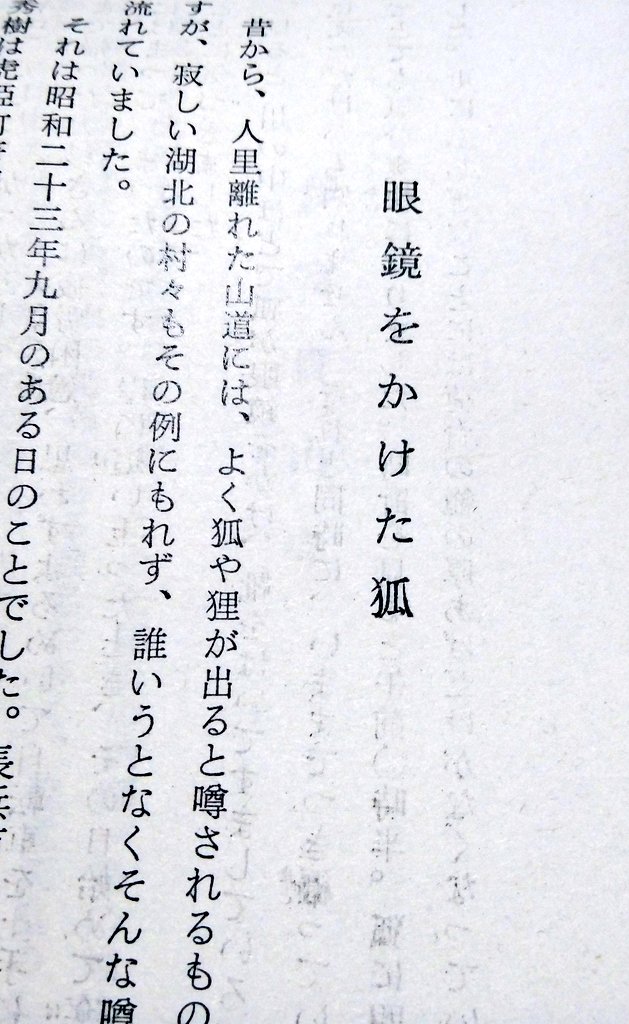 眼鏡をかけた狐
昔から、人里離れた山道には、よく狐や狸が出ると噂されるもの
すが、寂しい湖北の村々もその例にもれず、誰いうとなくそんな噂
流れていました。
それは昭和二十三年九月のある日のことでした。長
秀樹は虎姫町